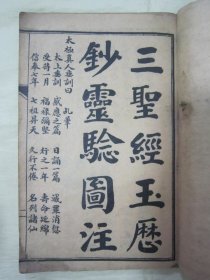 三聖經玉歷
鈔靈驗圖注
太極真人垂訓曰
太上垂訓 感應之篇 日誦一篇 滅罪消愆
受持一月 福祿彌堅 行之一年 壽命延綿
信奉七年 七祖昇天 久行不倦 名列諸仙